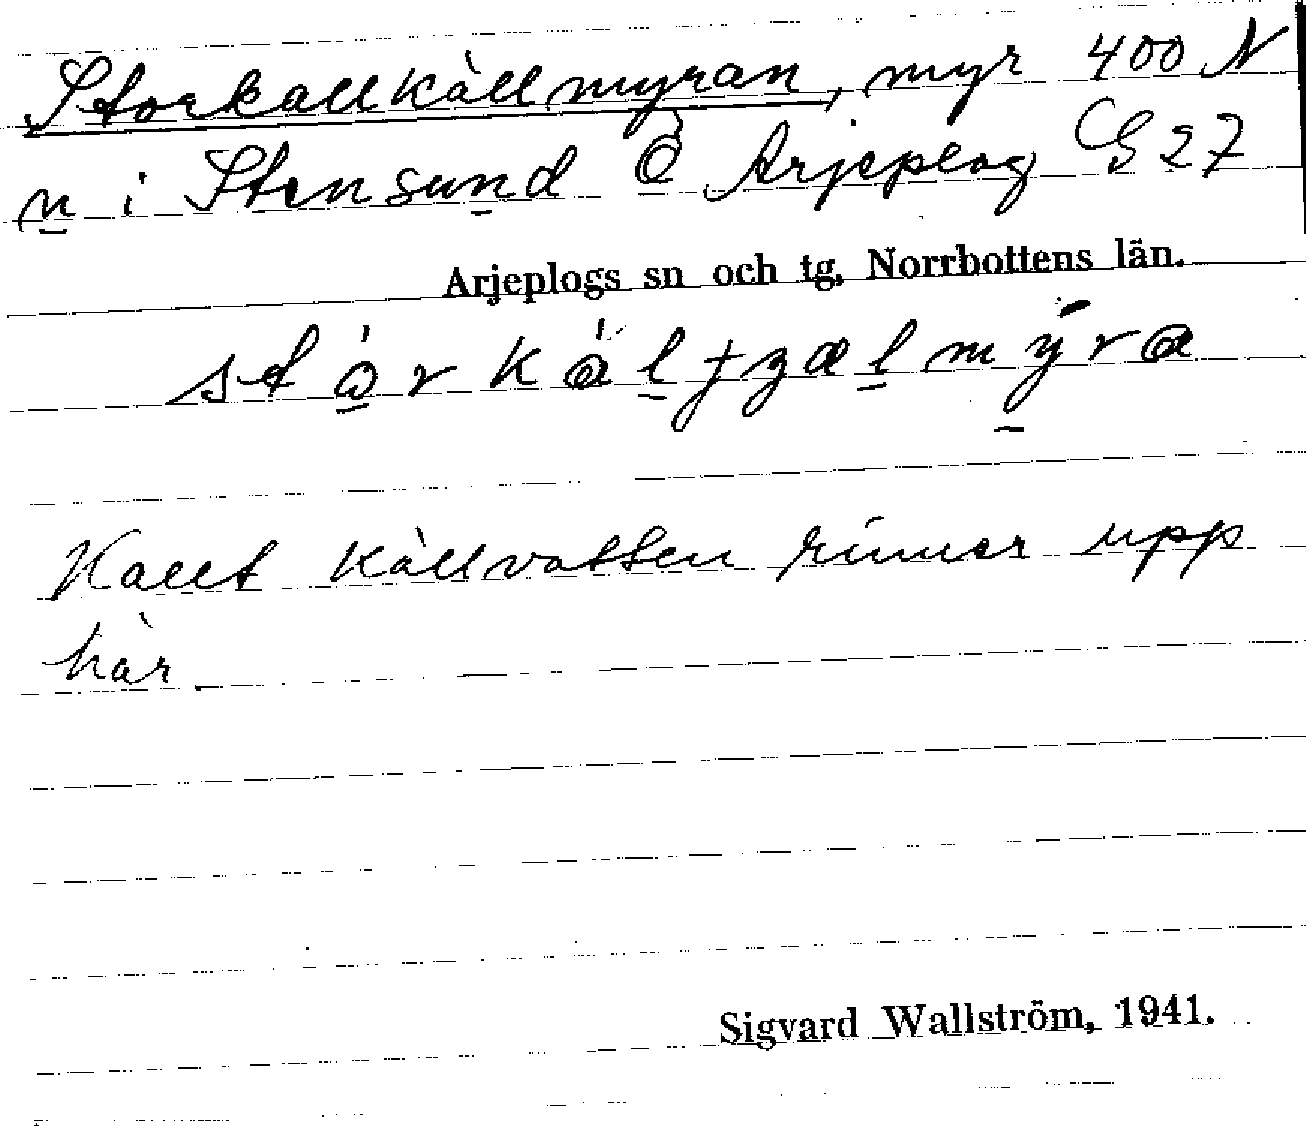 Storkallkällmyran, myr 400 N
n i Stensund Ö Arjeplog G 27
Arjeplogs sn och tg, Norrbottens län.
Kallt källvatten rinner upp
här
Sigvard Wallström, 1941.